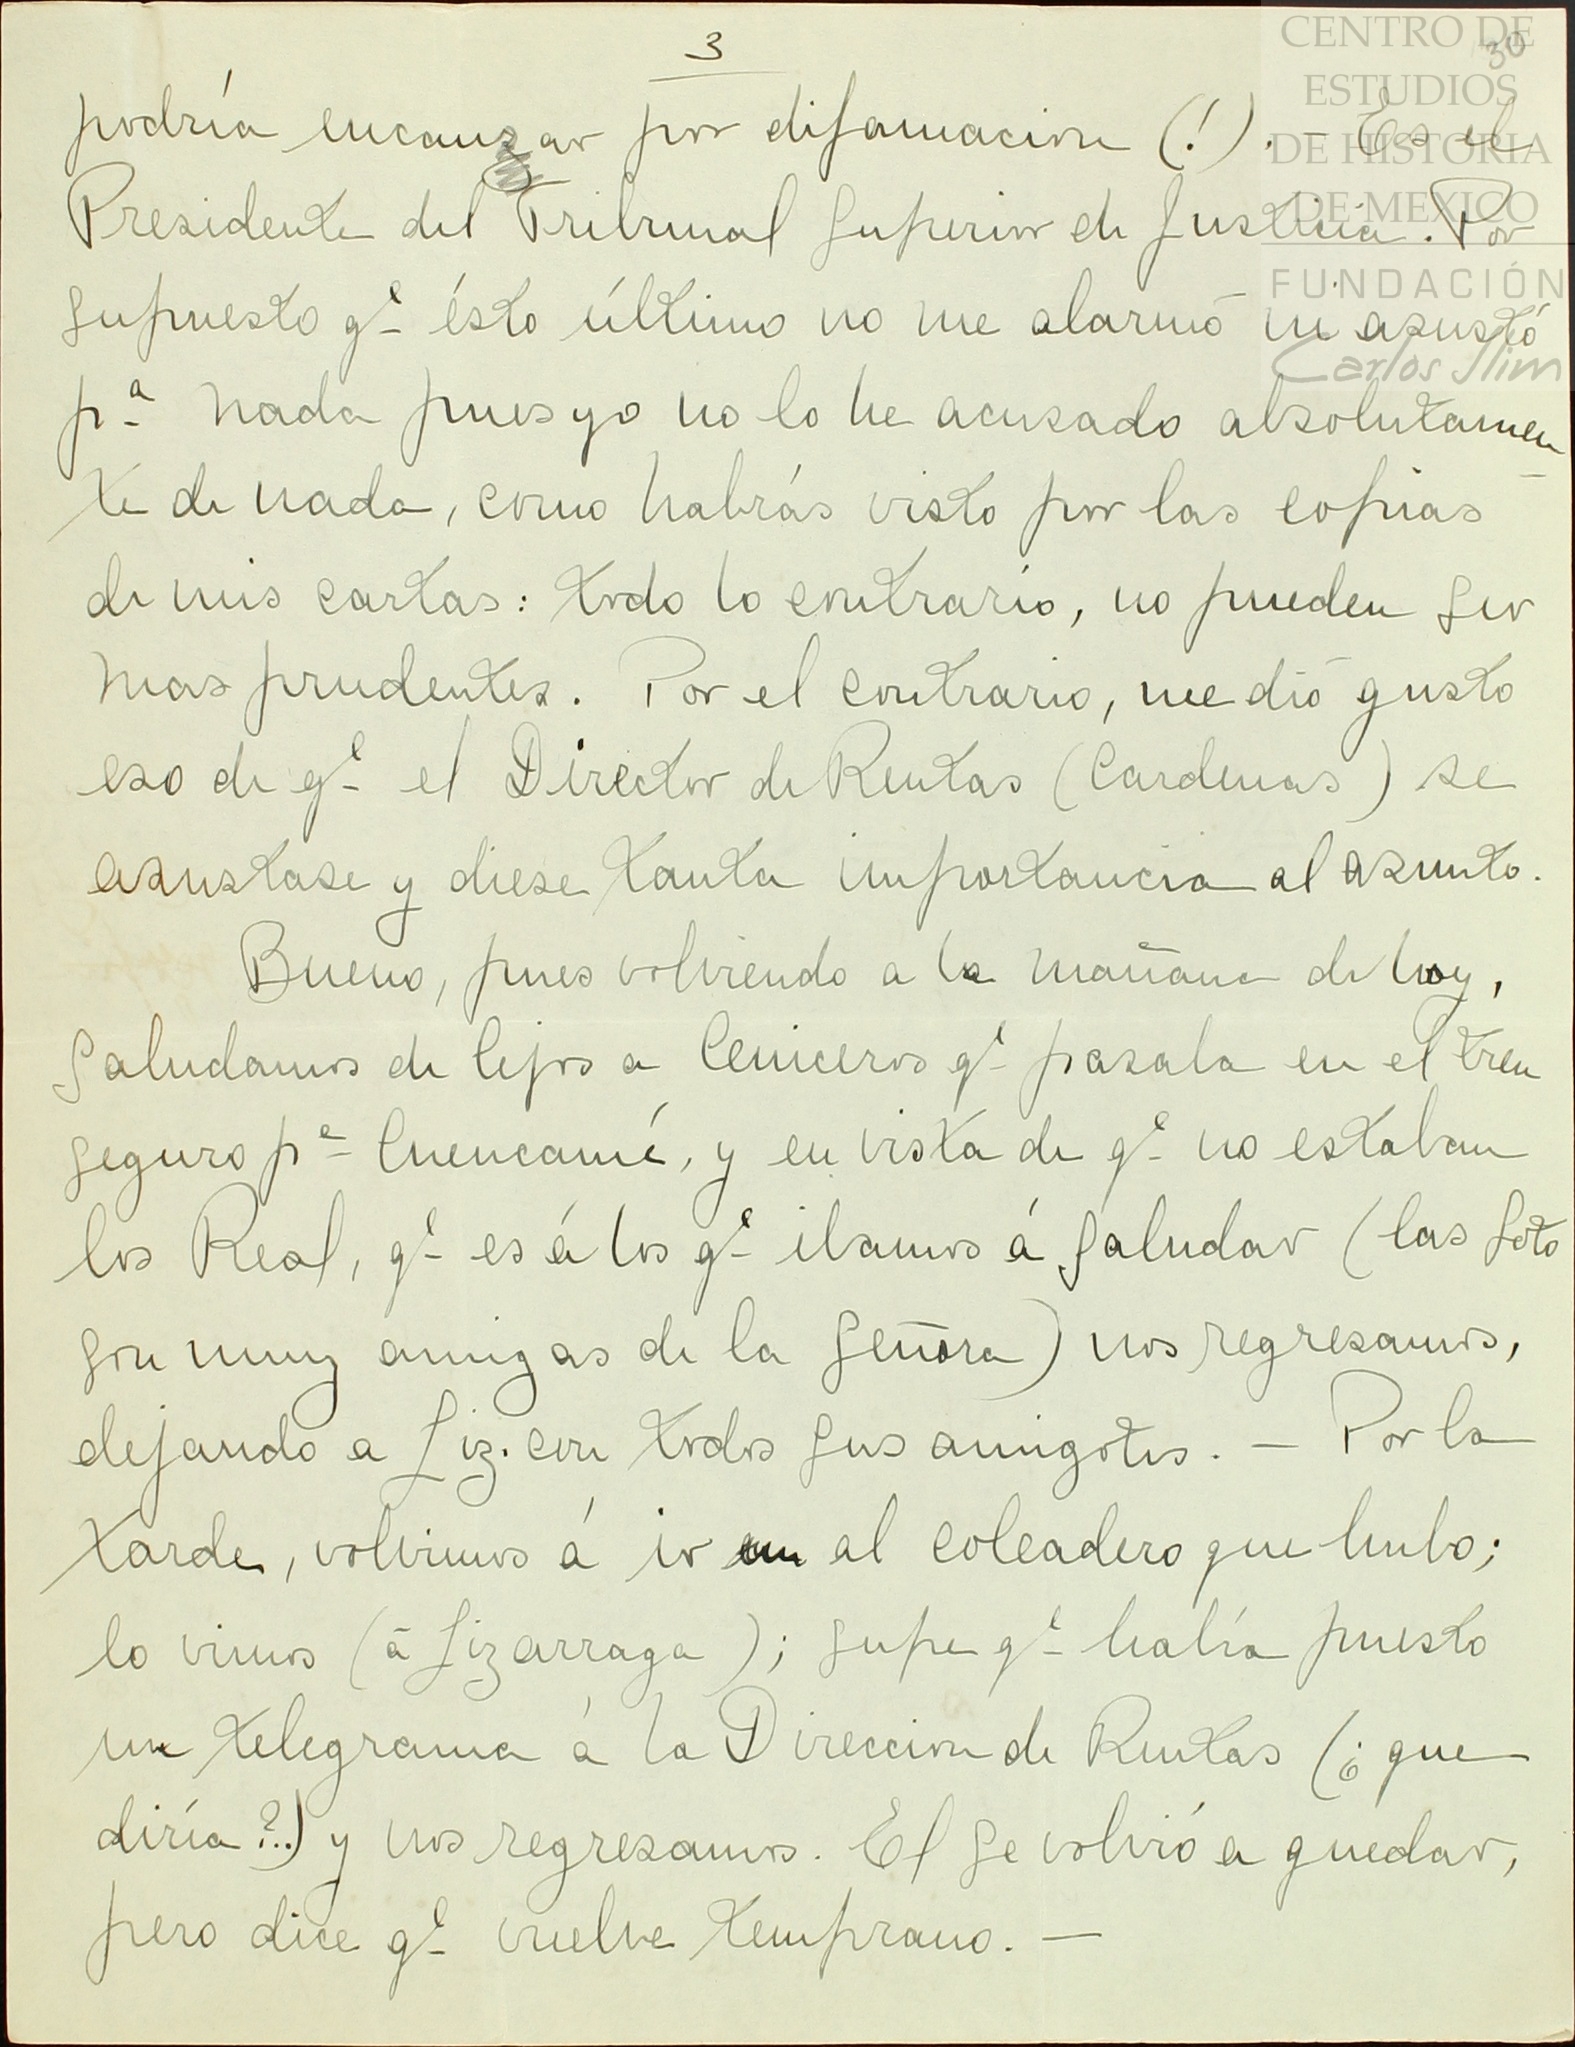 3
30
CENTRO DE
ESTUDIOS
DE HISTORIA
DE MEXICO
FUNDACIÓN
Carlos Slim
podría encauzar por difamacion (!). – Es el
Presidente del Tribunal Superior de Justicia. Por
supuesto qe ésto último no me alarmó ni asustó
pa nada pues yo no lo he acusado absolutamen
te de nada, como habrás visto por las copias
de mis cartas: todo lo contrario, no pueden ser
mas prudentes. Por el contrario, me dió gusto
eso de qe el Director de Rentas (Cardenas) se
asustase y diese tanta importancia al asunto.
Bueno, pues volviendo a la mañana de hoy,
saludamos de lejos a Ceniceros qe pasaba en el tren
seguro pa Cuencamé, y en vista de qe no estaban
los Real, qe es á los qe ibamos á saludar (las Soto
son muy amigas de la señora) nos regresamos,
dejando a Liz. con todos sus amigotes. – Por la
tarde, volvimos á ir al coleadero que hubo;
lo vimos (á Lizarraga); supe qe había puesto
un telegrama á la Direccion de Rentas (¿que
diría?..) y nos regresamos. El se volvió a quedar,
pero dice qe vuelve temprano. –